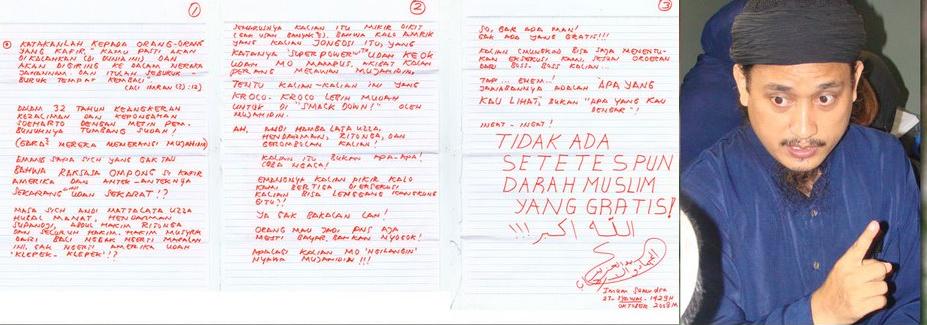 1
KATAKANLAH KEPADA ORANG-ORANG
YANG KAFIR "KAMU PASTI AKAN
DIKALAHKAN (DI DUNIA INI) DAN
AKAN DIGIRING KE DALAM NERAKA
JAHANNAM. DAN ITULAH SEBURUK-
BURUK TEMPAT KEMBALI"
(ALI IMRAN (3):12)
DALAM 32 TAHUN KEANGKERAN
KEZALIMAN DAN KEPONGAHAN
SOEHARTO DENGAN METIN PEM-
BUNUHNYA TUMBANG SUDAH!
(GARA2 MEREKA MEMERANGI MUJAHID)
EMANG SAPA SICH YANG GAK TAU
BAHWA RAKSASA OMPONG SI KAFIR
AMERIKA DAN ANTEK-ANTEKNYA
SEKARANG UDAH SEKARAT!?
MASA SICH ANDI MATTALATA UZZA
HUBAL MANAT, HENDARMAN
SUPANDJI, ABDUL HAKIM RITONGA
DAN SELURUH HAKIM-HAKIM MUSYRIK
DARI BALI NGGAK NGERTI MASALAH
INI, GAK NGERTI AMERIKA UDAH
'KLEPEK-KLEPEK'!?
2
SEHARUSNYA KALIAN ITU MIKIR DIKIT
(GAK USAH BANYAK2). BAHWA KALO AMRIK
YANG KALIAN JONGOSI ITU, YANG
KATANYA "SUPER POWER" UDAH KEOK
UDAH MO MAMPUS, AKIBAT KALAH
PERANG MELAWAN MUJAHIDIN,
TENTU KALIAN-KALIAN INI YANG
KROCO-KROCO LEBIH MUDAH
UNTUK DI "SMACK DOWN!" OLEH
MUJAHIDIN.
AH, ANDI HAMBA LATA UZZA,
HENDARMAN, RITONGA, DAN
GEROMBOLAN KALIAN!
KALIAN ITU BUKAN APA-APA!
COBA NGACA!
EMANGNYA KALIAN PIKIR KALO
KAMI BERTIGA DIEKSEKUSI
KALIAN BISA LENGGANG KANGKUNG
GITU?!
YA GAK BAKALAN LAH!
ORANG MAU JADI PNS AJA
MESTI BAYAR, BAHKAN NYOGOK!
APALAGI KALIAN MO 'NGILANGIN'
NYAWA MUJAHIDIN!!!
3
SO, GAK ADA MAN!
GAK ADA YANG GRATIS!!!
KALIAN MUNGKIN BISA SAJA MENENTU-
KAN EKSEKUSI KAMI, SESUAI ORDERAN
DARI BOSS-BOSS KALIAN..
TAPI... EHEM..!
JAWABANNYA ADALAH APA YANG
KAU LIHAT, BUKAN "APA YANG KAU
DENGAR"!
INGAT-INGAT!
TIDAK ADA
SETETES PUN
DARAH MUSLIM
YANG GRATIS!
الله اكبر!!!
Imam Samudra
27- SYAWAL-1429H
OKTOBER 2008M